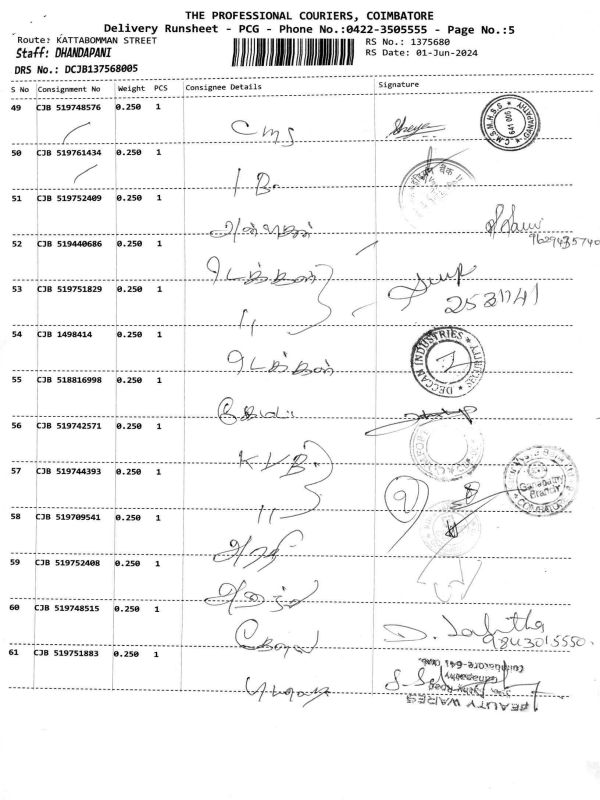 THE PROFESSIONAL COURIERS, COIMBATORE
Delivery Runsheet - PCG - Phone No.:0422-3505555 - Page No.:5
Route: KATTABOMMAN STREET
RS No.: 1375680
Staff: DHANDAPANI
RS Date: 01-Jun-2024
DRS No.: DCJB137568005
S No Consignment No Weight PCS Consignee Details Signature
49 CJB 519748576 0.250 1
CMS
C.M.S.M.H.S.S GANAPATHY 641 006
50 CJB 519761434 0.250 1
I B.
51 CJB 519752409 0.250 1
9629435740
52 CJB 519440686 0.250 1
டெக்கான்
53 CJB 519751829 0.250 1
11
2531141
54 CJB 1498414 0.250 1
டெக்கான்
DECCAN INDUSTRIES SECURITY
55 CJB 518816998 0.250 1
56 CJB 519742571 0.250 1
KVB.
57 CJB 519744393 0.250 1
11
Ganapathy Branch COIMBATORE
58 CJB 519709541 0.250 1
59 CJB 519752408 0.250 1
60 CJB 519748515 0.250 1
D. Lalitha
9843015550.
61 CJB 519751883 0.250 1
BEAUTY WARES
Ganapathy
Coimbatore-641